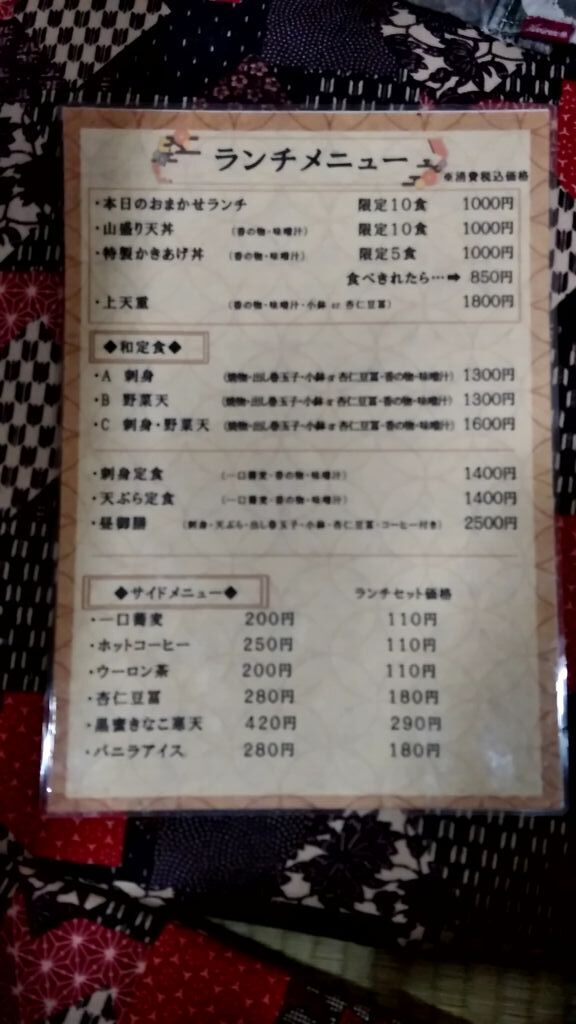 ランチメニュー
※消費税込価格
・本日のおまかせランチ 限定10食 1000円
・山盛り天丼 (香の物・味噌汁) 限定10食 1000円
・特製かきあげ丼 (香の物・味噌汁) 限定5食 1000円
食べきれたら…➡ 850円
・上天重 (香の物・味噌汁・小鉢 or 杏仁豆冨) 1800円
◆和定食◆
・A 刺身 (焼物・出し巻玉子・小鉢 or 杏仁豆冨・香の物・味噌汁) 1300円
・B 野菜天 (焼物・出し巻玉子・小鉢 or 杏仁豆冨・香の物・味噌汁) 1300円
・C 刺身・野菜天 (焼物・出し巻玉子・小鉢 or 杏仁豆冨・香の物・味噌汁) 1600円
・刺身定食 (一口蕎麦・香の物・味噌汁) 1400円
・天ぷら定食 (一口蕎麦・香の物・味噌汁) 1400円
・昼御膳 (刺身・天ぷら・出し巻玉子・小鉢・杏仁豆冨・コーヒー付き) 2500円
◆サイドメニュー◆ ランチセット価格
・一口蕎麦 200円 110円
・ホットコーヒー 250円 110円
・ウーロン茶 200円 110円
・杏仁豆冨 280円 180円
・黒蜜きなこ寒天 420円 290円
・バニラアイス 280円 180円